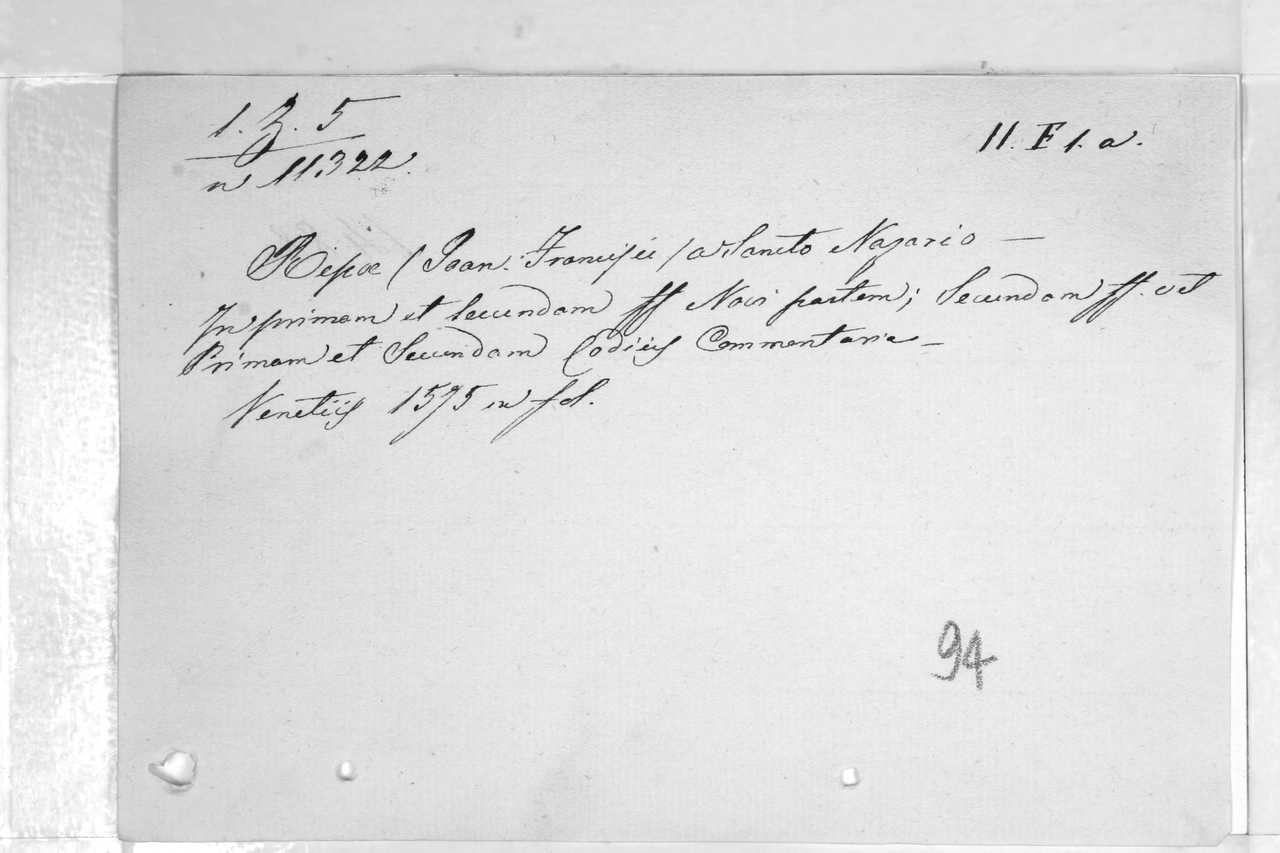 1. Z. 5
n 11322.
II. F 1. a.
Ripae (Joan. Francisci) a Sancto Nazario —
In primam et secundam ff Novi partem; Secundam ff. vet
Primam et Secundam Codicis Commentaria —
Venetiis 1575 in fol.
94